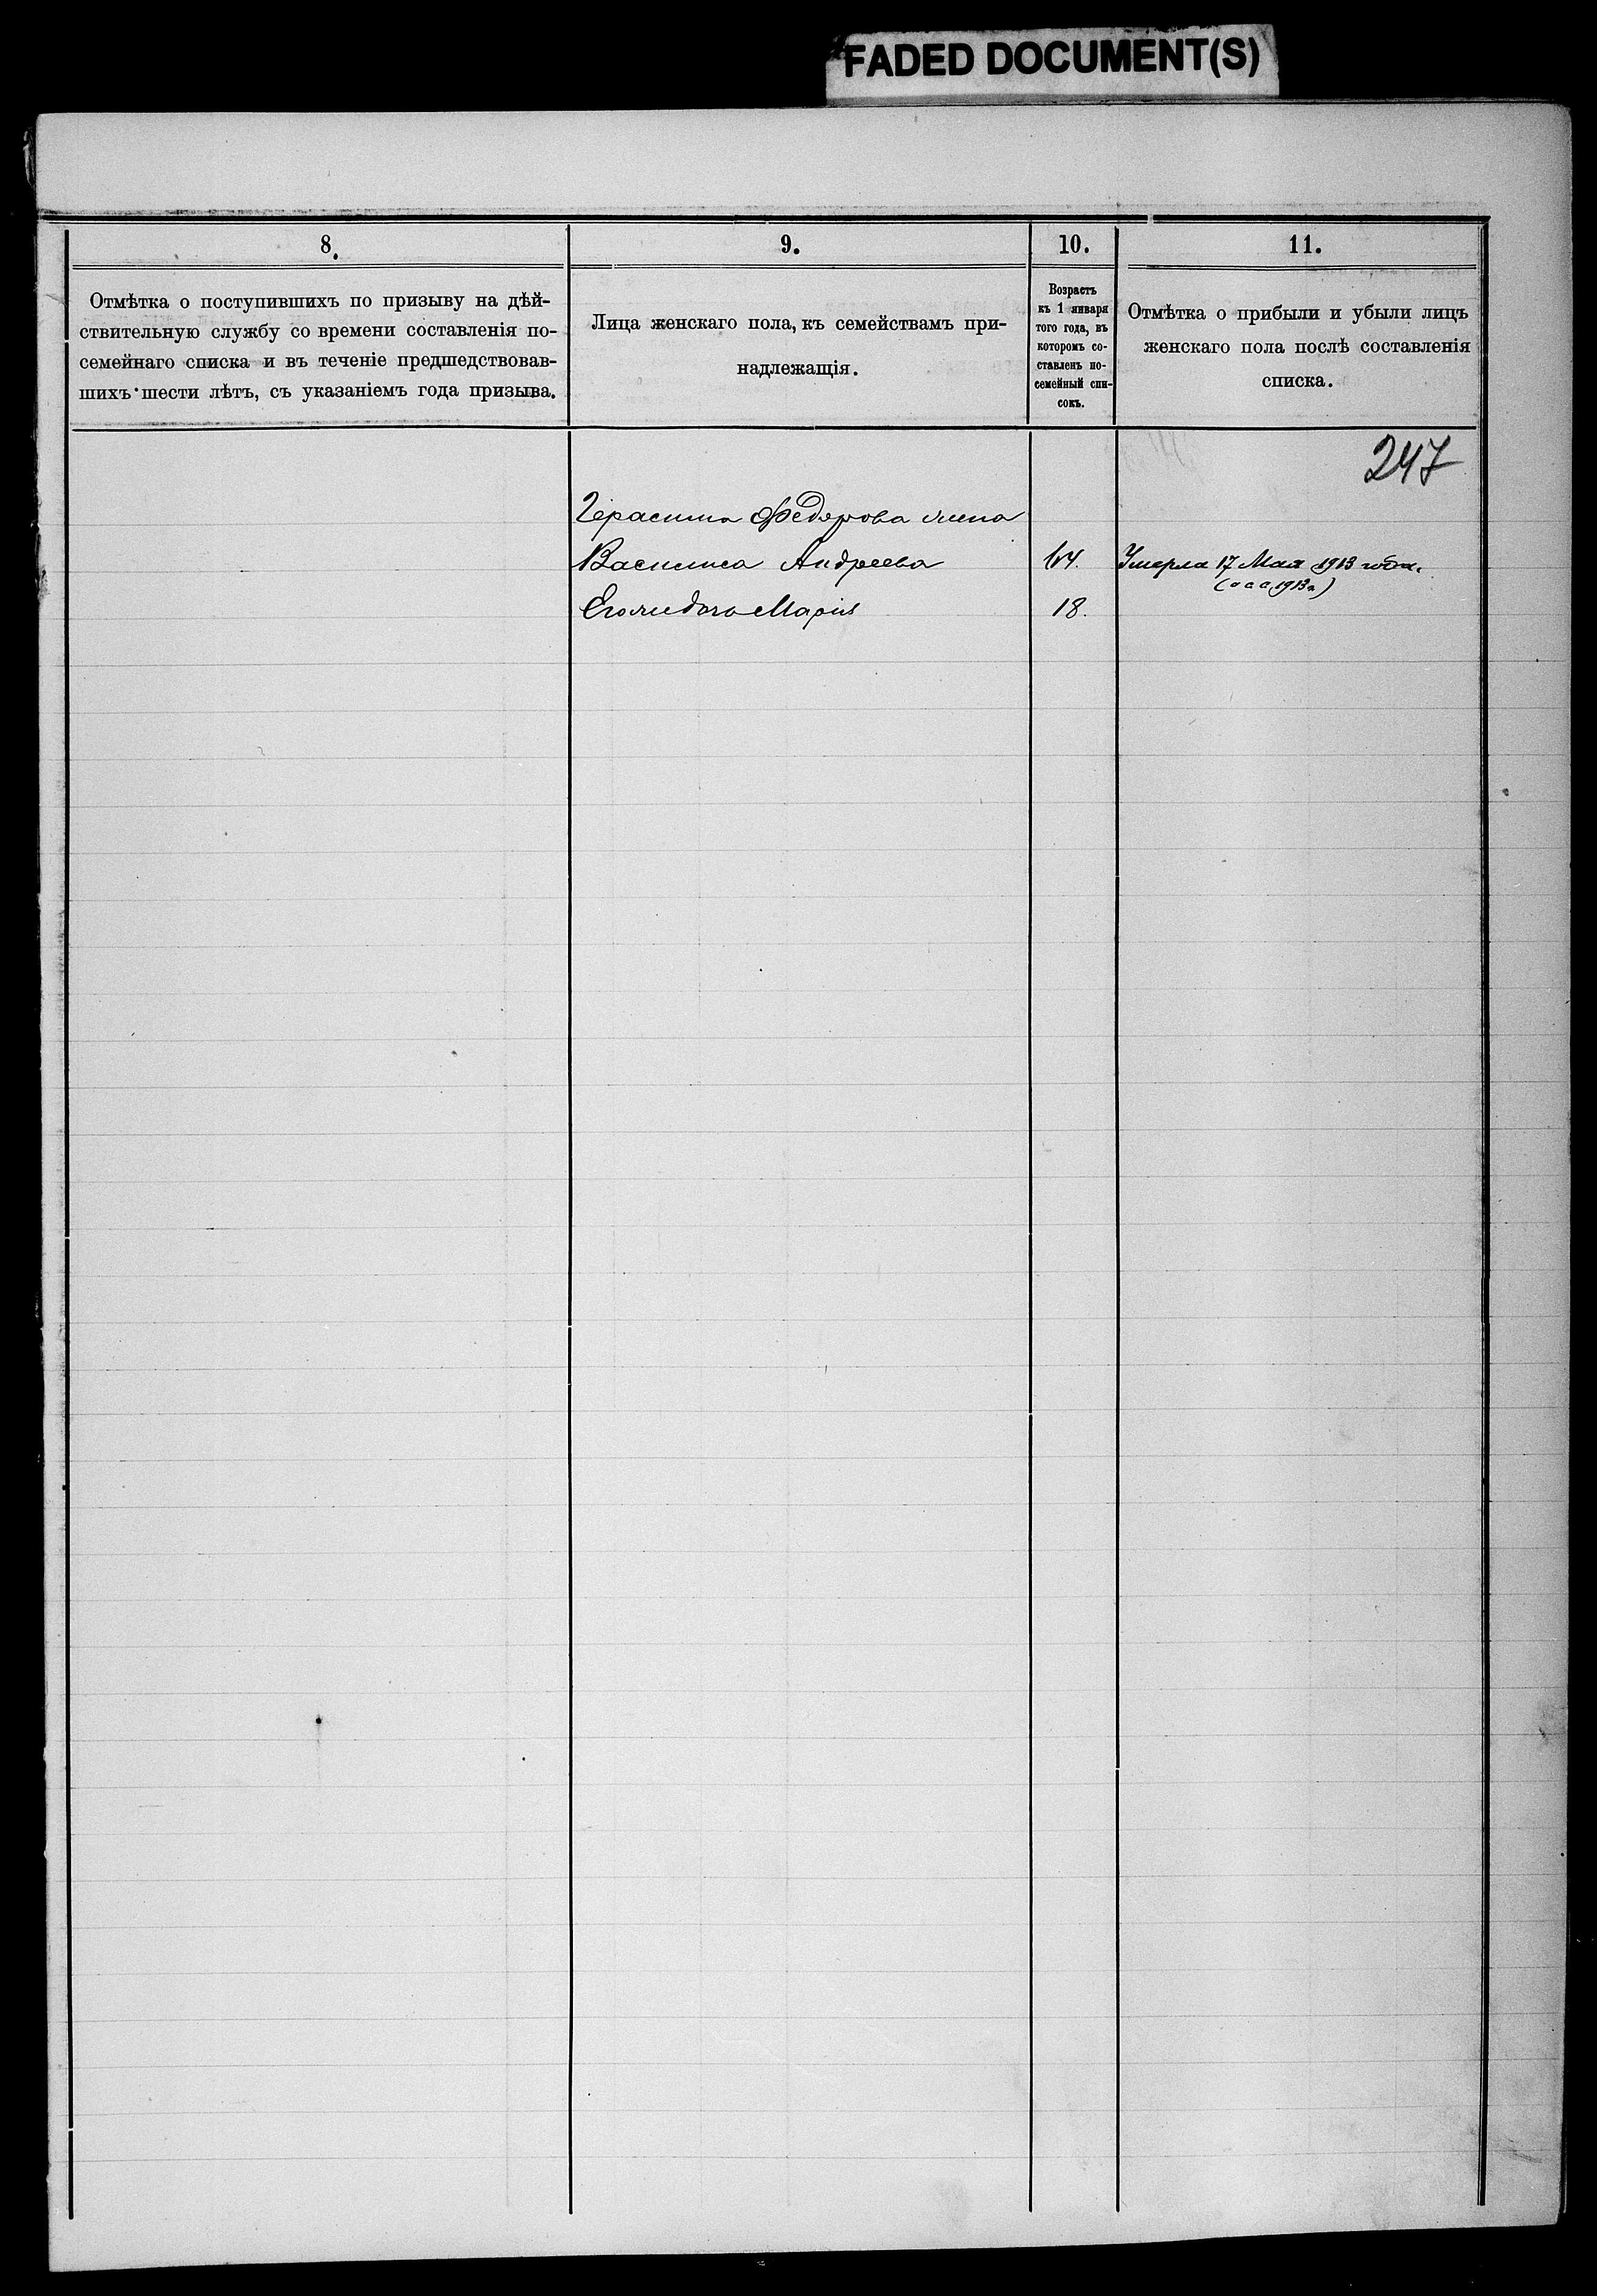 FADED DOCUMENT(S)
8.
Отмѣтка о поступившихъ по призыву на дѣй-
ствительную службу со времени составленія по-
семейнаго списка и въ теченіе предшедствовав-
шихъ шести лѣтъ, съ указаніемъ года призыва.
9.
Лица женскаго пола, къ семействамъ при-
надлежащія.
10.
Возрастъ
къ 1 января
того года, въ
которомъ со-
ставленъ по-
семейный спи-
сокъ.
11.
Отмѣтка о прибыли и убыли лицъ
женскаго пола послѣ составленія
списка.
247
Герасима Федорова жена
Василиса Андреева 64. Умерла 17 Мая 1913 года.
Его же дочь Марія 18.